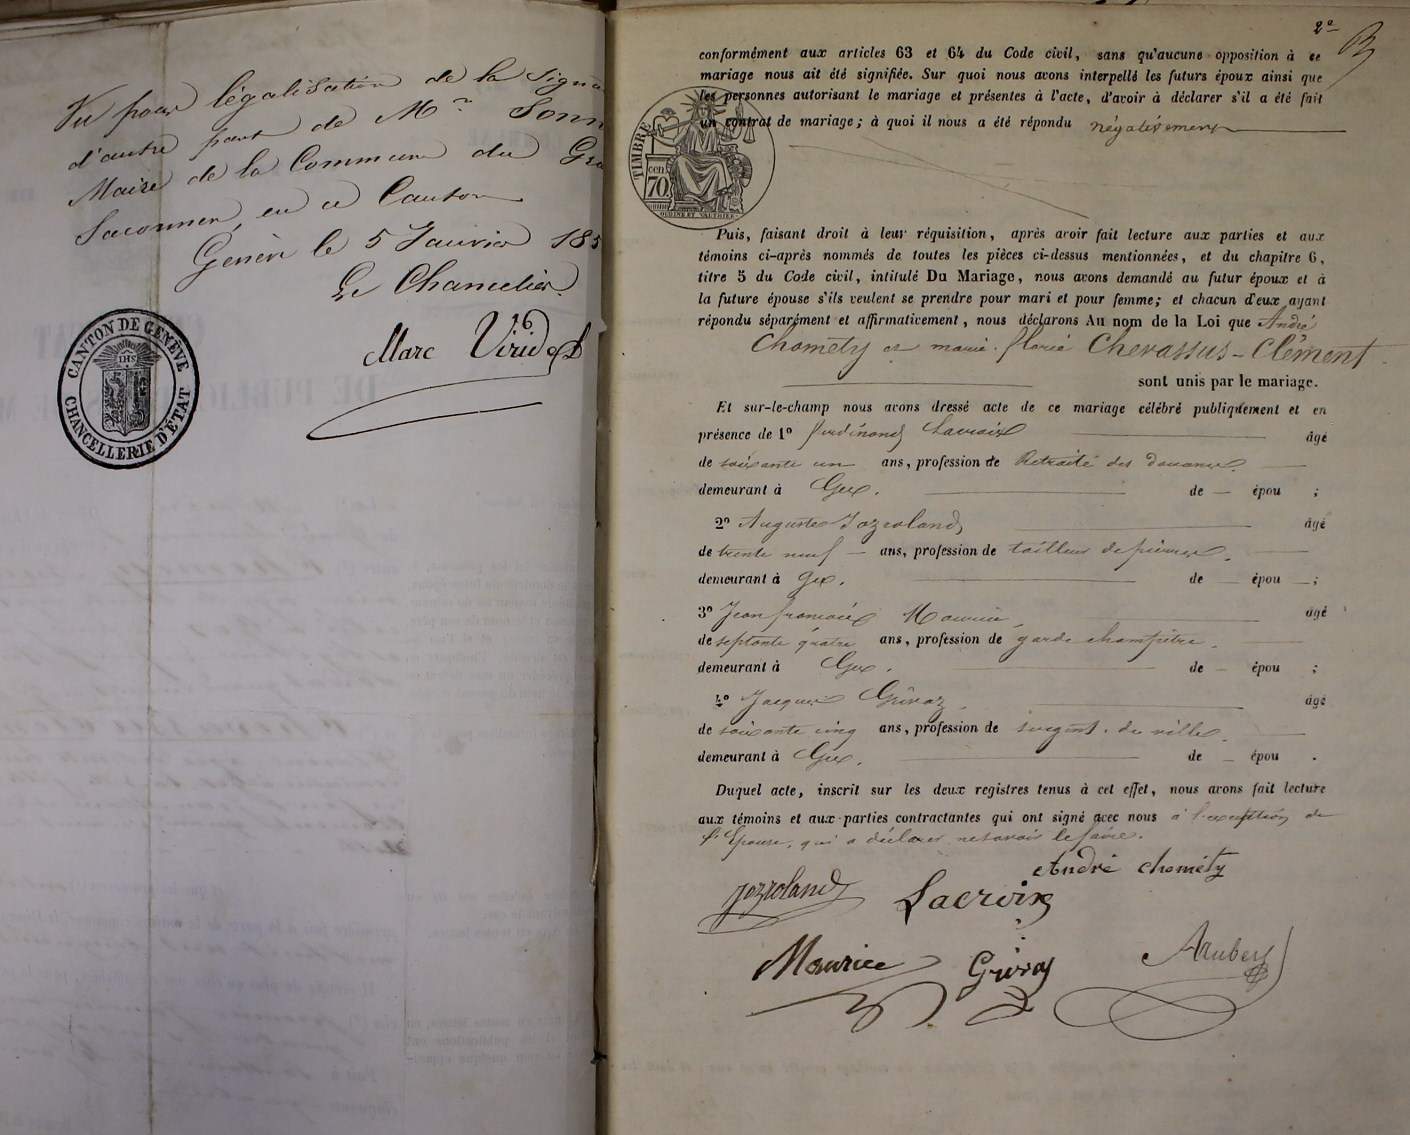 Vu pour légalisation de la Signa
d'autre part de Mr. Sonn
Maire de la Commune du Gra
Saconnex, en ce Canton
Genève le 5 Janvier 185
Le Chancelier.
Marc Viridet
CANTON DE GENEVE
CHANCELLERIE D'ÉTAT
IHS
2e
conformément aux articles 63 et 64 du Code civil, sans qu'aucune opposition à ce
mariage nous ait été signifiée. Sur quoi nous avons interpellé les futurs époux ainsi que
les personnes autorisant le mariage et présentes à l'acte, d'avoir à déclarer s'il a été fait
un contrat de mariage; à quoi il nous a été répondu négativement
TIMBRE
cen
70
OUDINE ET VAUTHIER
Puis, faisant droit à leur réquisition, après avoir fait lecture aux parties et aux
témoins ci-après nommés de toutes les pièces ci-dessus mentionnées, et du chapitre 6,
titre 5 du Code civil, intitulé Du Mariage, nous avons demandé au futur époux et à
la future épouse s'ils veulent se prendre pour mari et pour femme; et chacun d'eux ayant
répondu séparément et affirmativement, nous déclarons Au nom de la Loi que André
Chométy et marie florie Chevassus-Clément
sont unis par le mariage.
Et sur-le-champ nous avons dressé acte de ce mariage célébré publiquement et en
présence de 1º ferdinand Lacroix âgé
de soixante un ans, profession de Retraité des douanes.
demeurant à Gex. de épou ;
2º Auguste Jozroland âgé
de trente neuf ans, profession de tailleur de pierres.
demeurant à gex. de épou ;
3º Jean françois Maurice âgé
de septante quatre ans, profession de garde champêtre.
demeurant à Gex. de épou ;
4º Jacques Grivaz âgé
de soixante cinq ans, profession de sergent de ville
demeurant à Gex. de épou .
Duquel acte, inscrit sur les deux registres tenus à cet effet, nous avons fait lecture
aux témoins et aux parties contractantes qui ont signé avec nous à l'exception de
l'Epouse, qui a déclaré ne savoir le faire.
André chométy
Jozroland Lacroix
Maurice Grivaz